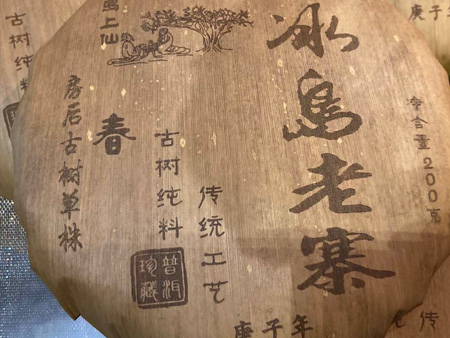 冰岛老寨
传统工艺
古树纯料
普洱
珍藏
春
房后古树单株
庚子年
净含量200克
古树纯料
庚子
传